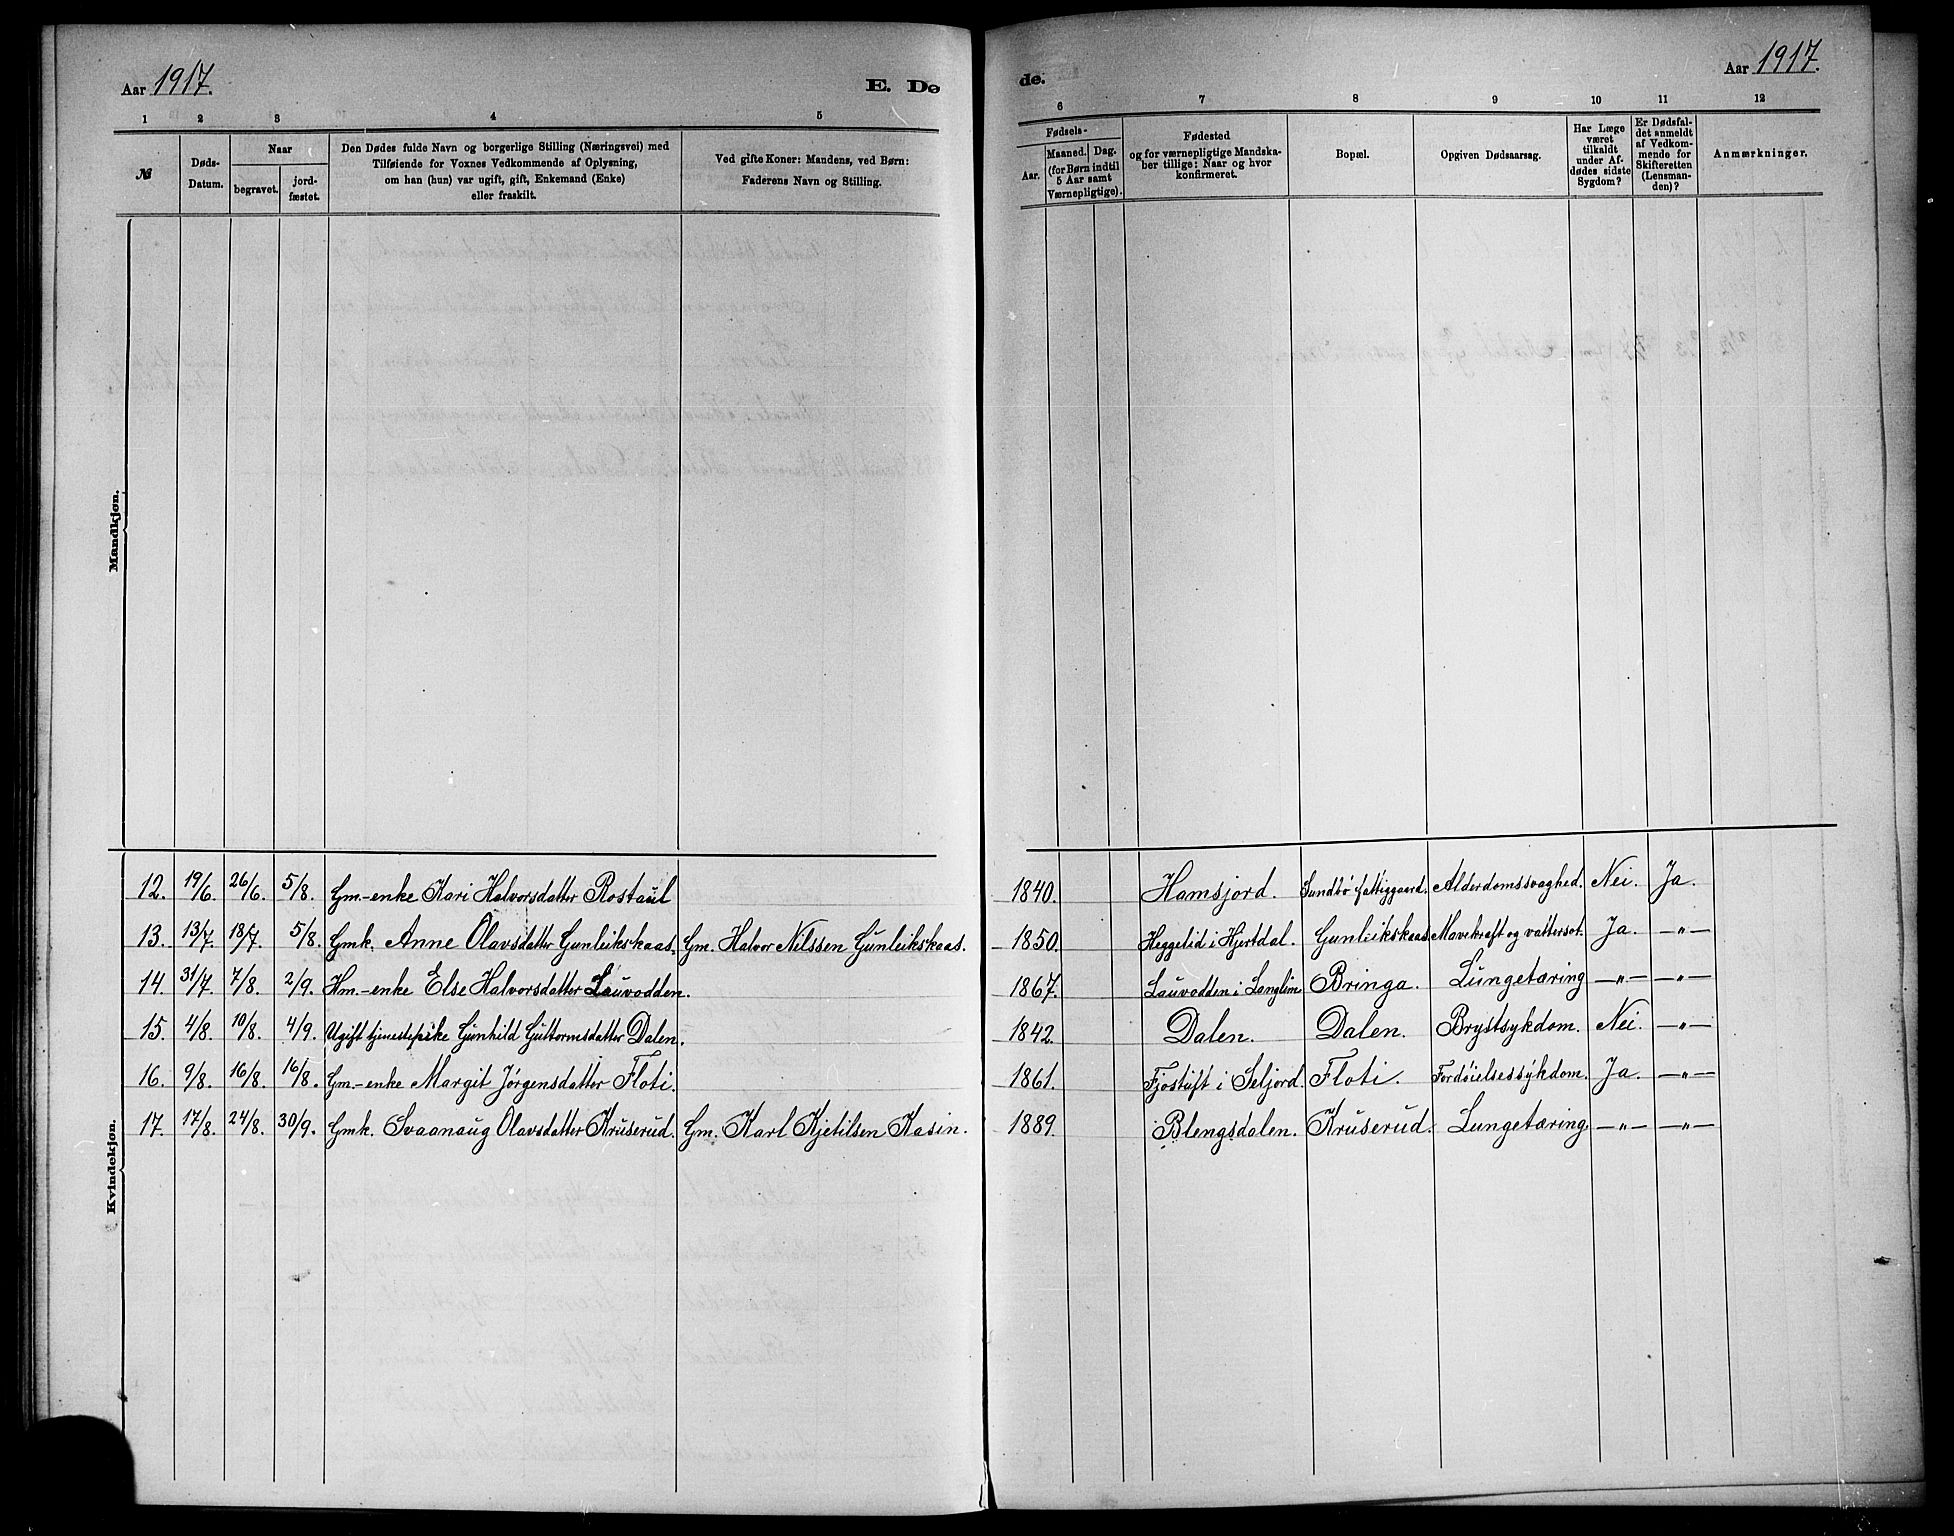 Aar 1917.
E. Dø
1 2 3 4 5
№
Døds-
Datum.
Naar
begravet.
jord-
fæstet.
Den Dødes fulde Navn og borgerlige Stilling (Næringsvei) med
Tilføiende for Voxnes Vedkommende af Oplysning,
om han (hun) var ugift, gift, Enkemand (Enke)
eller fraskilt.
Ved gifte Koner: Mandens, ved Børn:
Faderens Navn og Stilling.
Mandkjøn.
Kvindekjøn.
12. 19/6. 26/6. 5/8. Gm.-enke Kari Halvorsdatter Rostaul
13. 13/7. 18/7. 5/8. Gmk. Anne Olavsdatter Gunleikskaas. Gm. Halvor Nilssen Gunleikskaas.
14. 31/7. 7/8. 2/9. Hm.-enke Else Halvorsdatter Lauvodden.
15. 4/8. 10/8. 4/9. Ugift tjenestepike Gunhild Guttormsdatter Dalen.
16. 9/8. 16/8. 16/8. Gm.-enke Margit Jørgensdatter Floti.
17. 17/8. 24/8. 30/9. Gmk. Svaanaug Olavsdatter Kruserud. Gm. Karl Kjetilsen Kasin.
de.
Aar 1917.
6 7 8 9 10 11 12
Fødsels-
Aar.
Maaned. Dag.
(for Børn indtil
5 Aar samt
Værnepligtige).
Fødested
og for værnepligtige Mandska-
ber tillige: Naar og hvor
konfirmeret.
Bopæl.
Opgiven Dødsaarsag.
Har Læge
været
tilkaldt
under Af-
dødes sidste
Sygdom?
Er Dødsfal-
det anmeldt
af Vedkom-
mende for
Skifteretten
(Lensman-
den)?
Anmærkninger.
1840. Hamsjord. Sundbö fattiggaard. Alderdomssvaghed. Nei. Ja.
1850. Heggelid i Hjertdal. Gunleikskaas. Mavekræft og vattersot. Ja. —"—
1867. Lauvodden i Langlim Bringa. Lungetæring —"— —"—
1842. Dalen. Dalen. Brystsykdom. Nei. —"—
1861. Fjostuft i Seljord. Floti. Fordöielsessykdom. Ja. —"—
1889. Blengsdalen. Kruserud. Lungetæring. —"— —"—